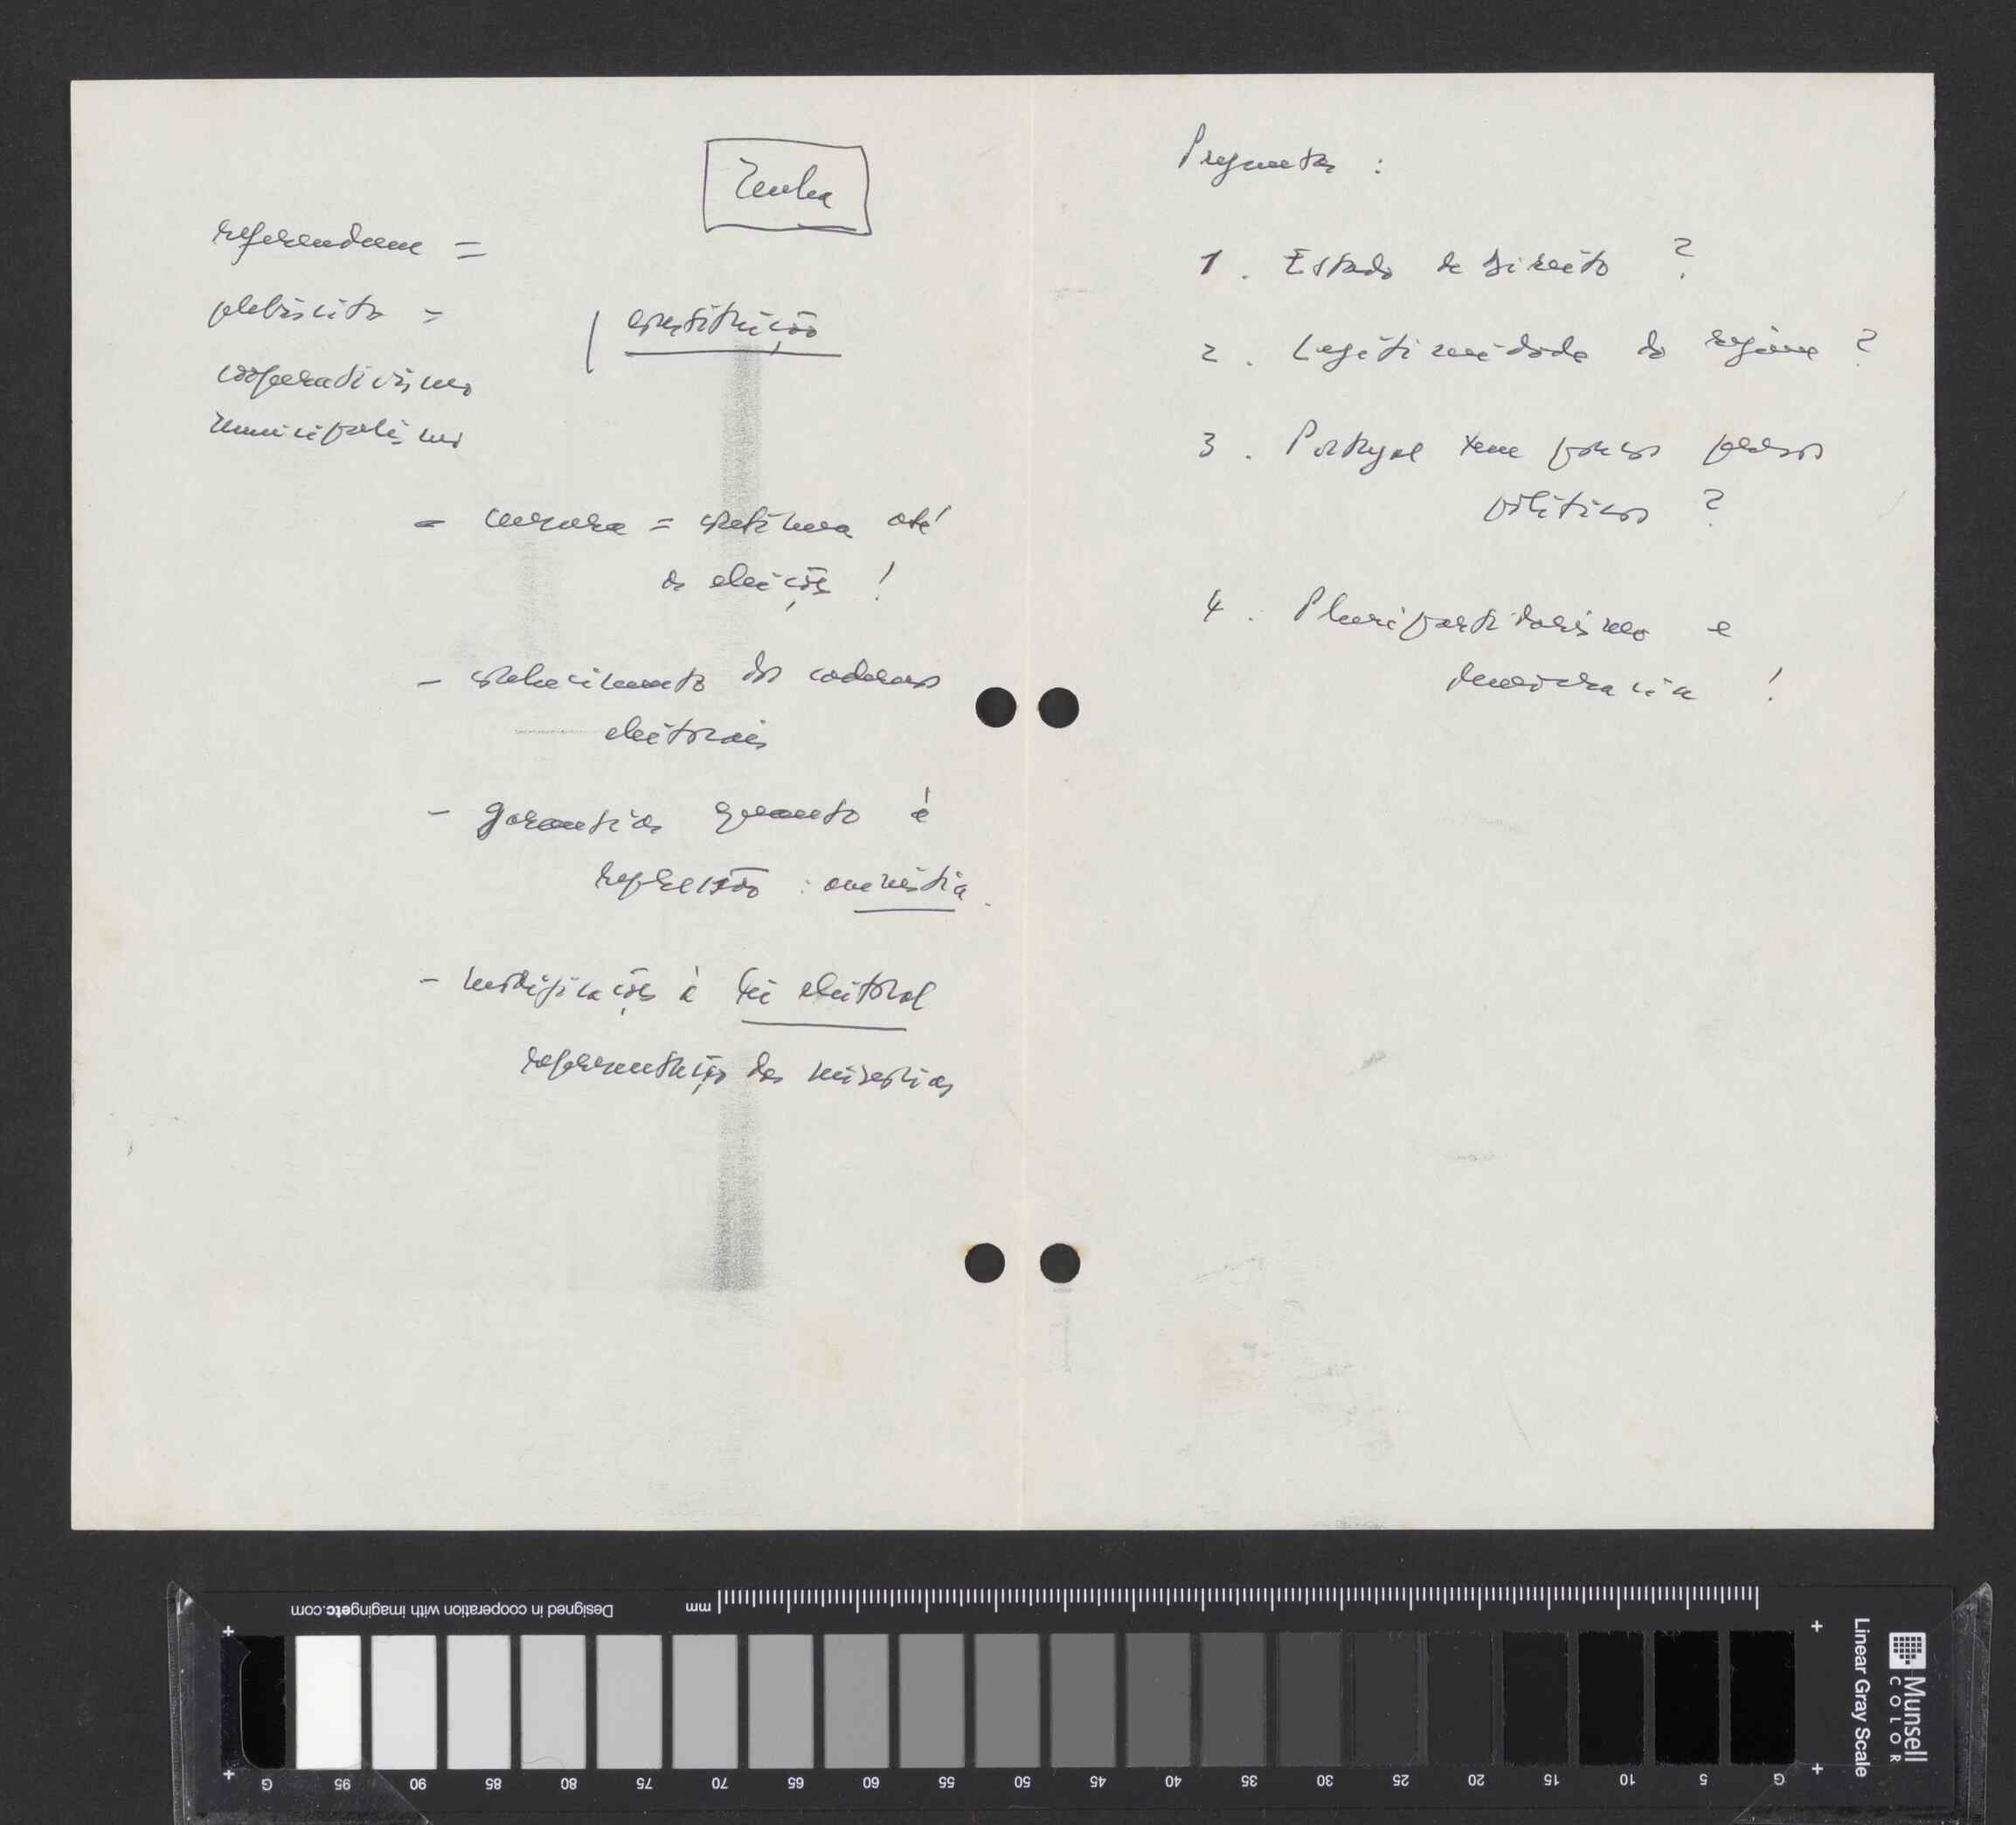 Zenha
referendum =
plebiscito =
cooperativismo
municipalismo
constituição
- censura = continua até
às eleições !
- conhecimento dos cadernos
eleitorais
- garantias quanto à
repressão : amnistia.
- modificações à lei eleitoral
representação das minorias
Preguntas :
1. Estado de Direito ?
2. Legitimidade do regime ?
3. Portugal tem poucos presos
políticos ?
4. Pluripartidarismo e
democracia !
Designed in cooperation with imagingetc.com
mm
G 95 90 85 80 75 70 65 60 55 50 45 40 35 30 25 20 15 10 5 G
Linear Gray Scale
Munsell
COLOR